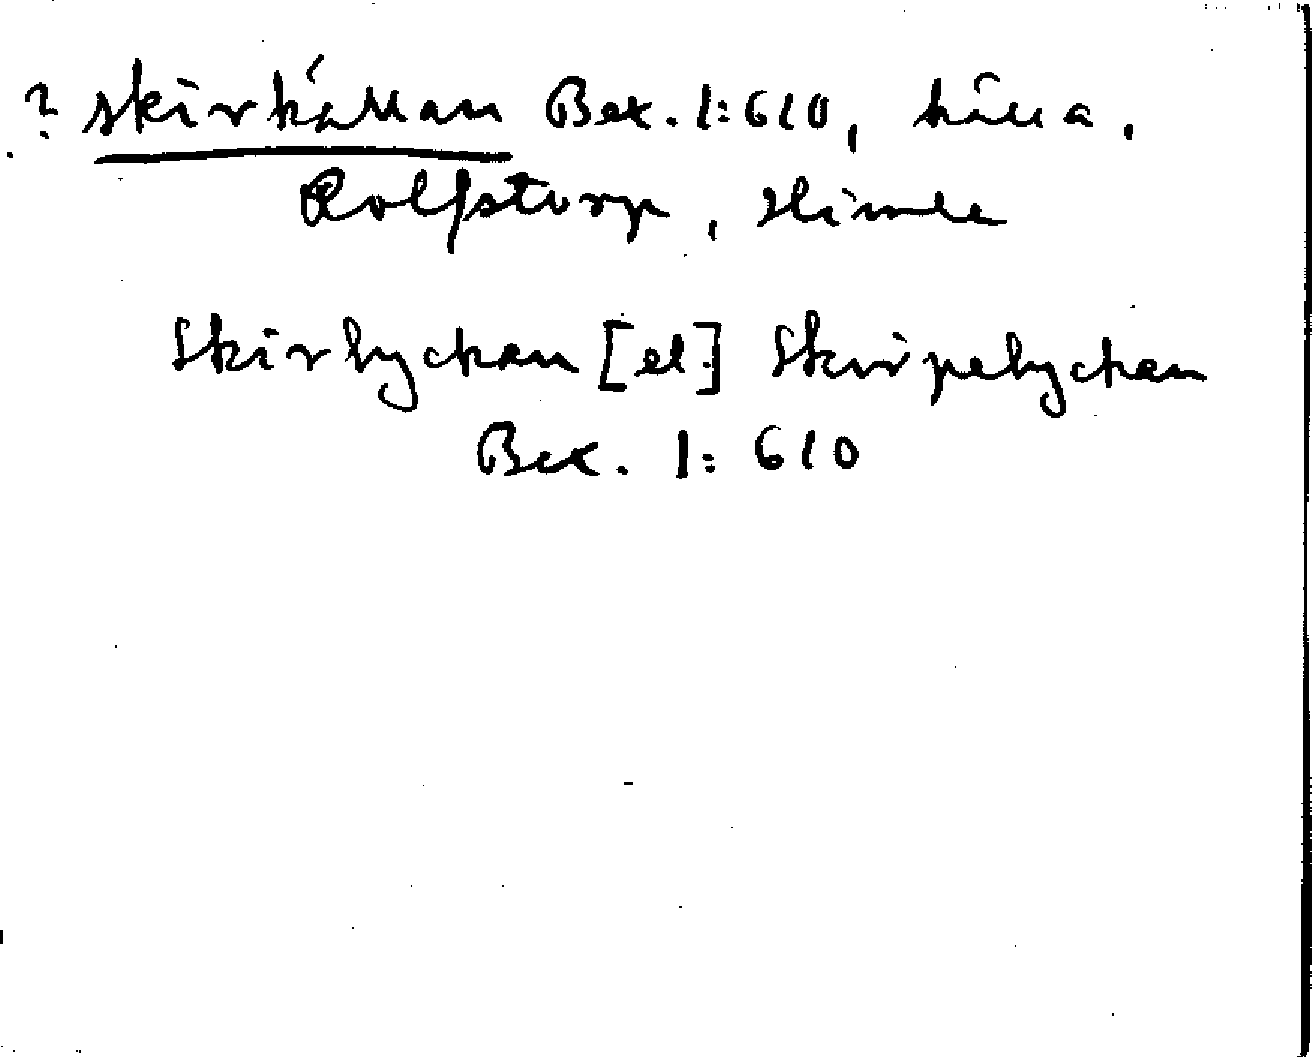 ? Skirkällan Bex. 1:610, källa,
Rolfstorp, Himle
Skirlyckan [el] Skirpelyckan
Bex. 1:610